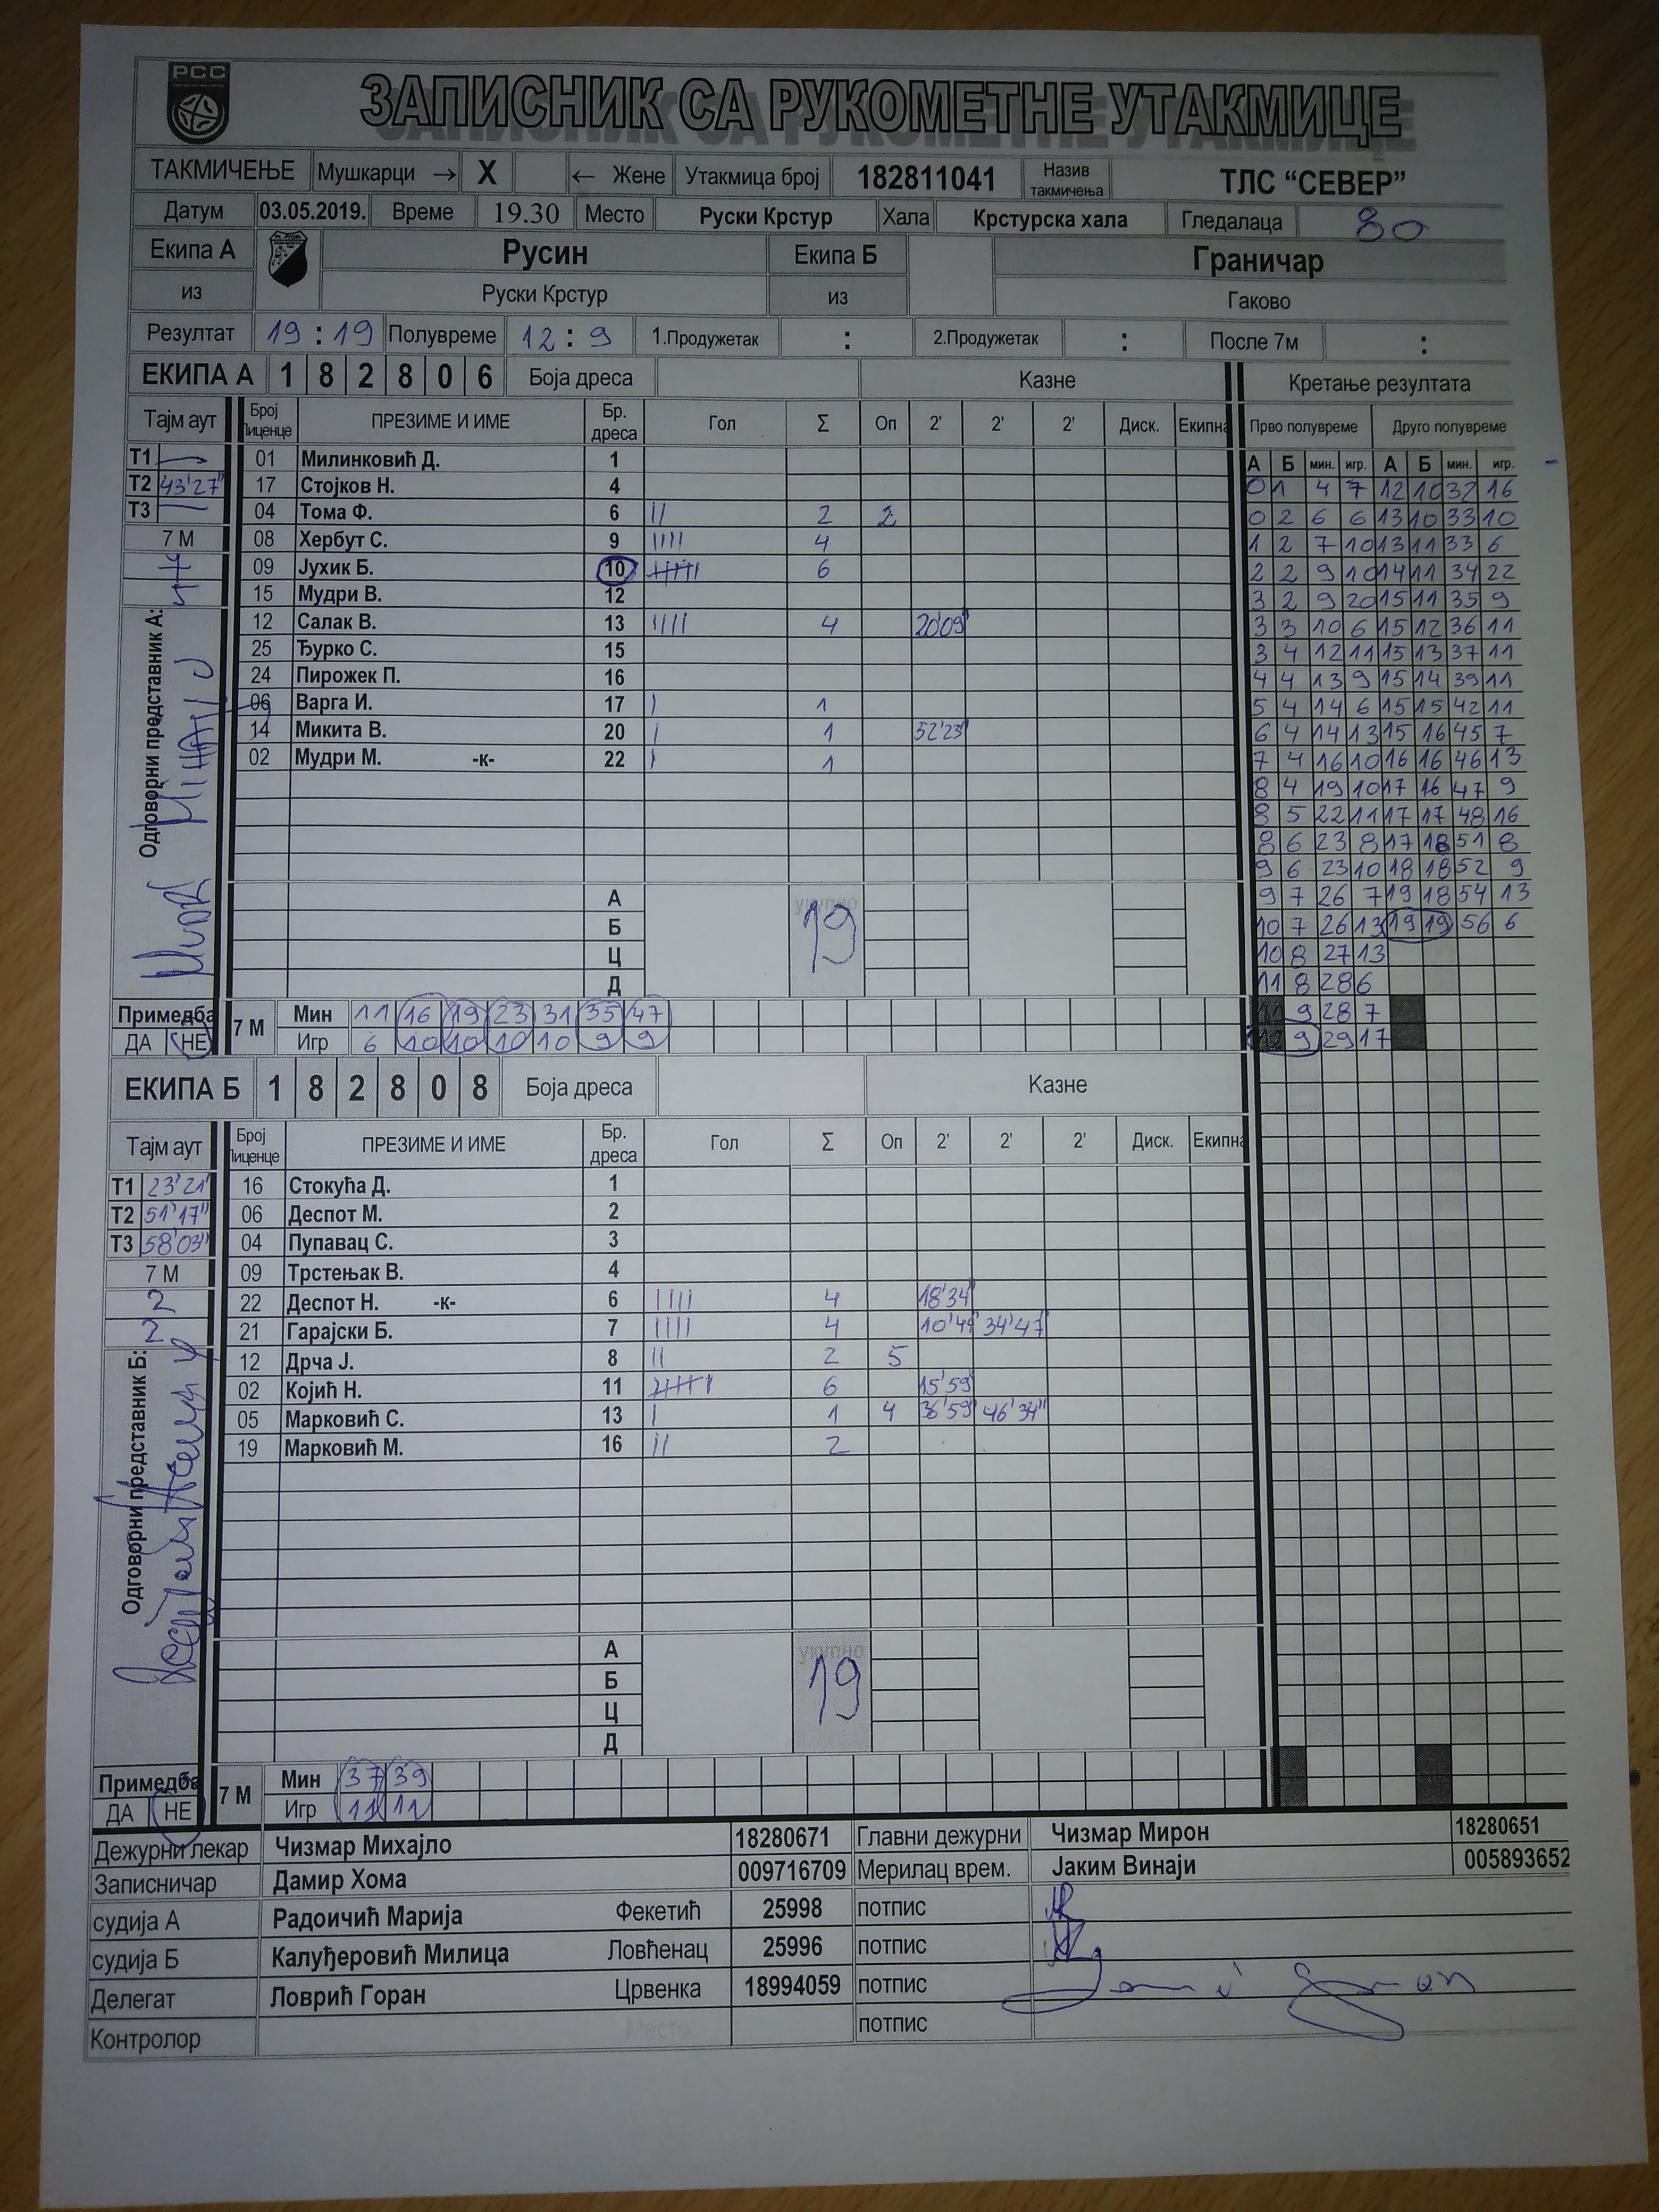 РСС
ЗАПИСНИК СА РУКОМЕТНЕ УТАКМИЦЕ
ТАКМИЧЕЊЕ Мушкарци → X ← Жене Утакмица број 182811041 Назив такмичења ТЛС “СЕВЕР”
Датум 03.05.2019. Време 19.30 Место Руски Крстур Хала Крстурска хала Гледалаца 80
Екипа А Русин Екипа Б Граничар
из Руски Крстур из Гаково
Резултат 19 : 19 Полувреме 12 : 9 1.Продужетак : 2.Продужетак : После 7м :
ЕКИПА А 1 8 2 8 0 6 Боја дреса Казне Кретање резултата
Тајм аут Број Лиценце ПРЕЗИМЕ И ИМЕ Бр. дреса Гол Σ Оп 2' 2' 2' Диск. Екипна Прво полувреме Друго полувреме
Т1 01 Милинковић Д. 1 А Б мин. игр. А Б мин. игр.
Т2 43'27" 17 Стојков Н. 4 0 1 4 7 12 10 32 16
Т3 04 Тома Ф. 6 || 2 2 0 2 6 6 13 10 33 10
7 М 08 Хербут С. 9 |||| 4 1 2 7 10 13 11 33 6
09 Јухик Б. 10 6 2 2 9 10 14 11 34 22
15 Мудри В. 12 3 2 9 20 15 11 35 9
12 Салак В. 13 |||| 4 20'09" 3 3 10 6 15 12 36 11
25 Ђурко С. 15 3 4 12 11 15 13 37 11
24 Пирожек П. 16 4 4 13 9 15 14 39 11
06 Варга И. 17 | 1 5 4 14 6 15 15 42 11
14 Микита В. 20 | 1 52'23" 6 4 14 13 15 16 45 7
02 Мудри М. -к- 22 | 1 7 4 16 10 16 16 46 13
8 4 19 10 17 16 47 9
8 5 22 11 17 17 48 16
8 6 23 8 17 18 51 8
9 6 23 10 18 18 52 9
А укупно 9 7 26 7 19 18 54 13
Б 19 10 7 26 13 19 19 56 6
Ц 10 8 27 13
Д 11 8 28 6
Одговорни представник А:
Примедба 7 М Мин 11 16 19 23 31 35 47 11 9 28 7
ДА НЕ Игр 6 10 10 10 10 9 9 12 9 29 17
ЕКИПА Б 1 8 2 8 0 8 Боја дреса Казне
Тајм аут Број Лиценце ПРЕЗИМЕ И ИМЕ Бр. дреса Гол Σ Оп 2' 2' 2' Диск. Екипна
Т1 23'21" 16 Стокућа Д. 1
Т2 51'17" 06 Деспот М. 2
Т3 58'03" 04 Пупавац С. 3
7 М 09 Трстењак В. 4
2 22 Деспот Н. -к- 6 |||| 4 18'34"
2 21 Гарајски Б. 7 |||| 4 34'47"
12 Дрча Ј. 8 || 2 5
02 Којић Н. 11 6 15'59"
05 Марковић С. 13 | 1 4 36'59" 46'34"
19 Марковић М. 16 || 2
Одговорни представник Б:
А укупно
Б 19
Ц
Д
Примедба 7 М Мин 37 39
ДА НЕ Игр 11 11
Дежурни лекар Чизмар Михајло 18280671 Главни дежурни Чизмар Мирон 18280651
Записничар Дамир Хома 009716709 Мерилац врем. Јаким Винаји 005893652
судија А Радоичић Марија Фекетић 25998 потпис
судија Б Калуђеровић Милица Ловћенац 25996 потпис
Делегат Ловрић Горан Црвенка 18994059 потпис
Контролор Место потпис